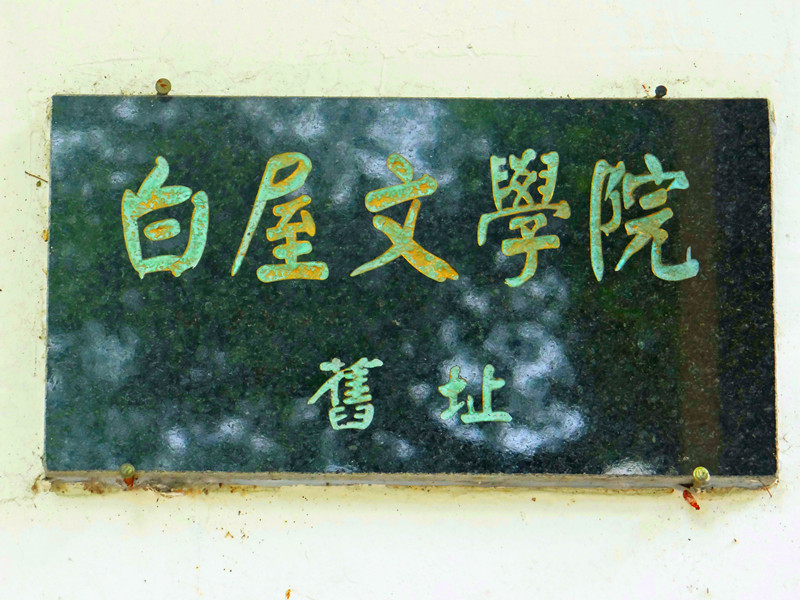 白屋文學院
舊址